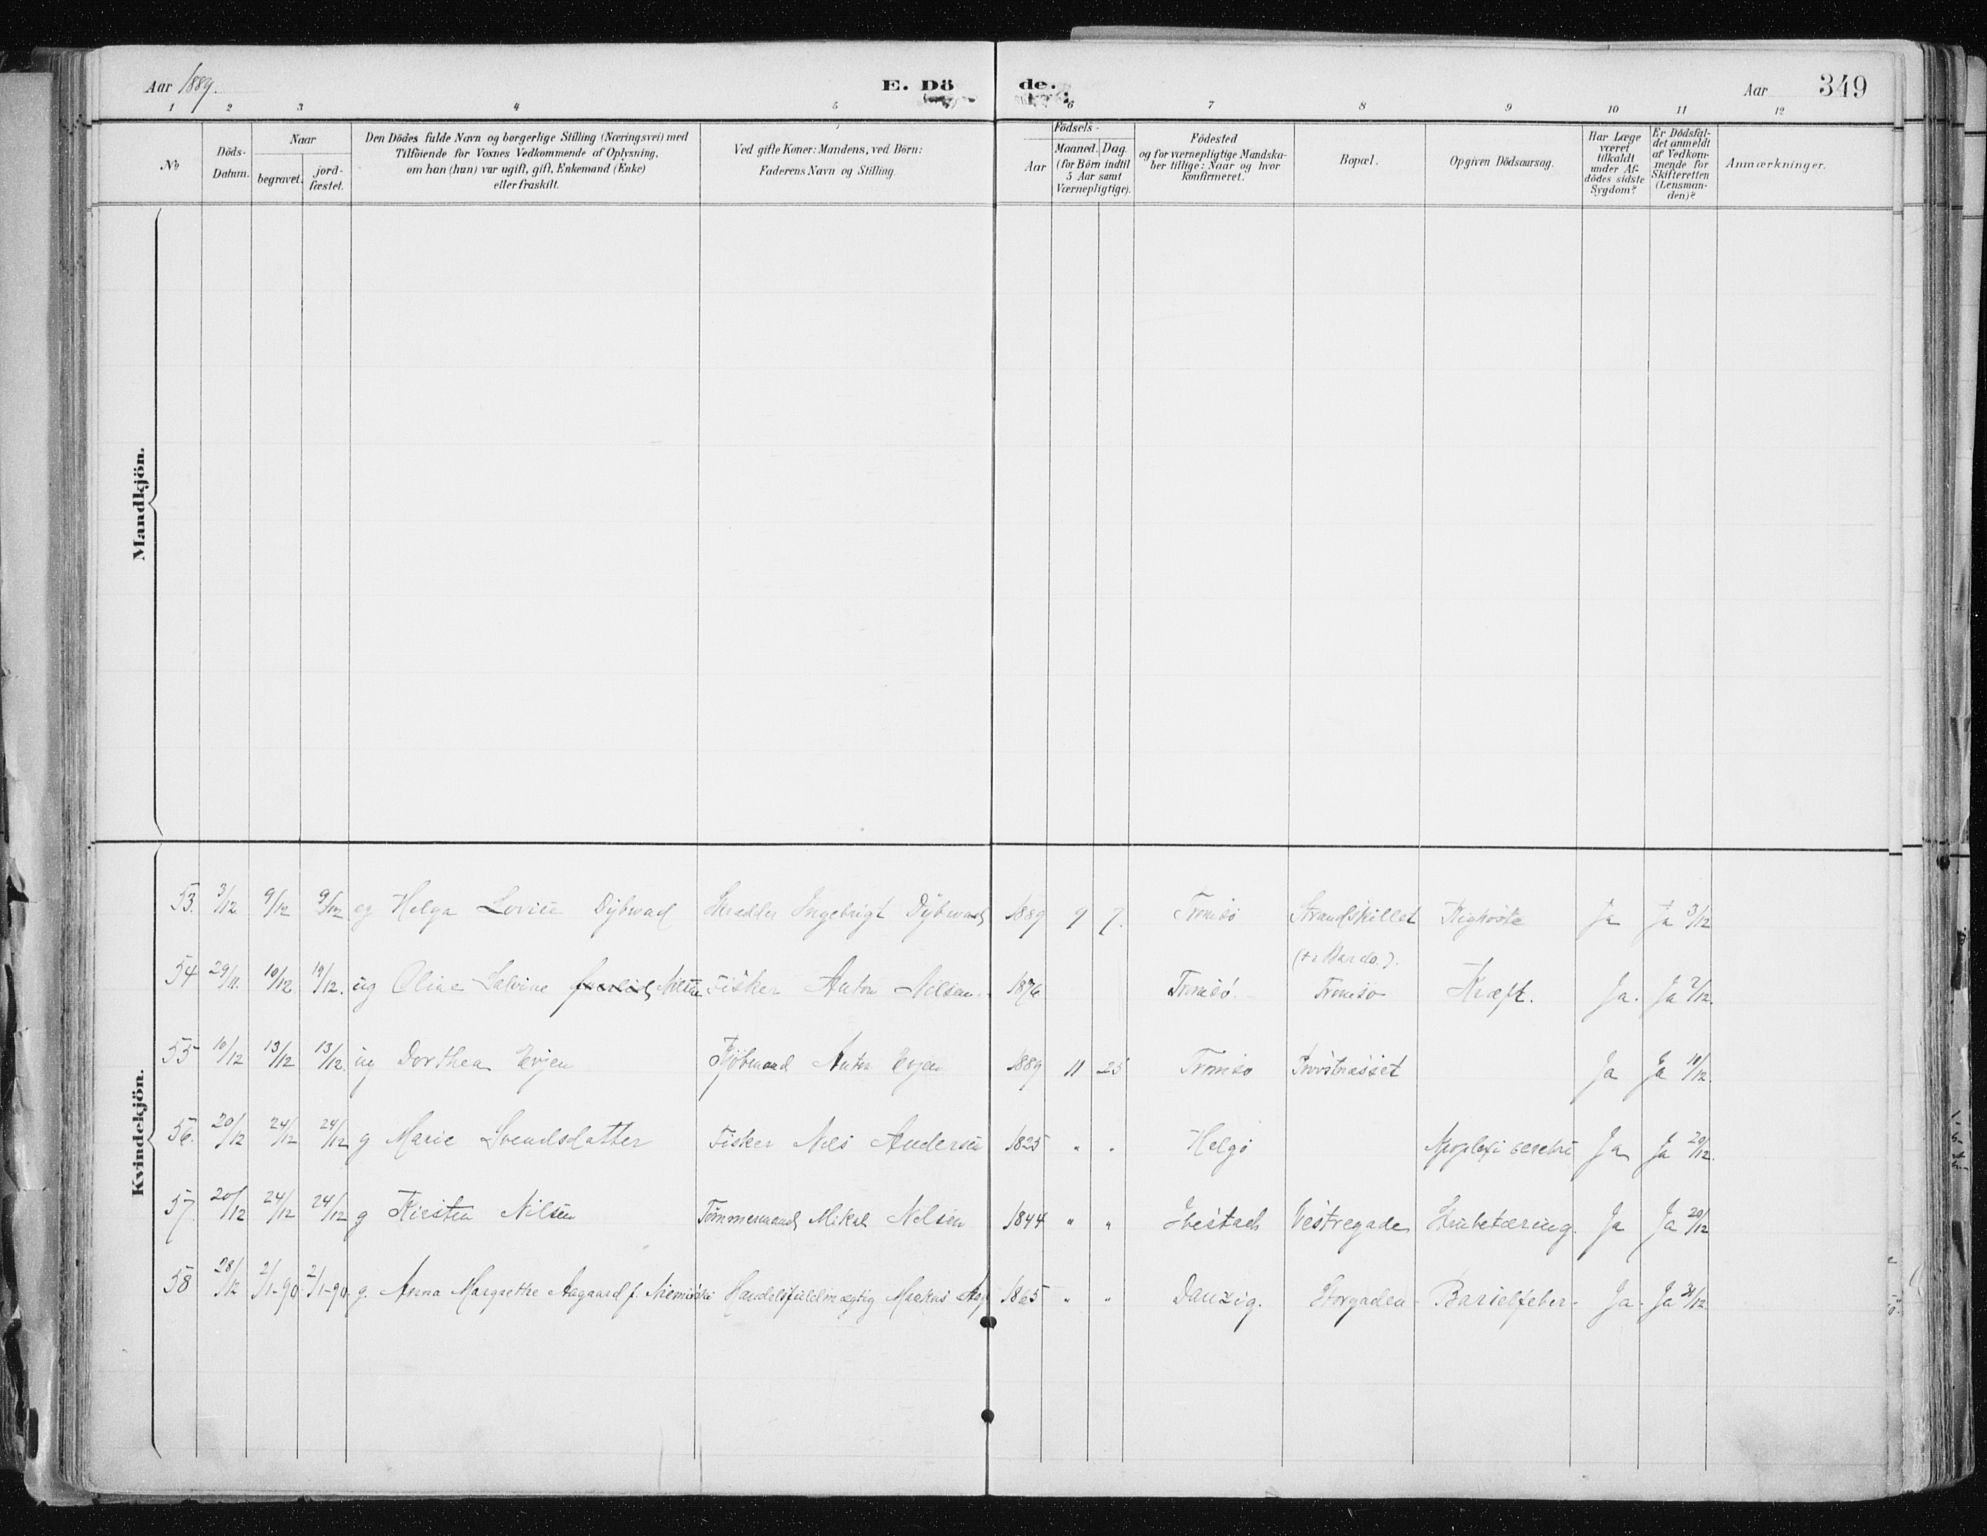 Aar 1889. E. Dö de. Aar 349
1 2 3 4 5 6 7 8 9 10 11 12
No
Döds-
Datum.
Naar
begravet.
jord-
fæstet.
Den Dödes fulde Navn og borgerlige Stilling (Næringsvei) med
Tilföiende for Voxnes Vedkommende af Oplysning,
om han (hun) var ugift, gift, Enkemand (Enke)
eller fraskilt.
Ved gifte Koner: Mandens, ved Börn:
Faderens Navn og Stilling.
Födsels-
Aar
Maaned. Dag.
(for Börn indtil
5 Aar samt
Værnepligtige).
Födested
og for værnepligtige Mandska-
ber tillige: Naar og hvor
konfirmeret.
Bopæl.
Opgiven Dödsaarsag.
Har Læge
været
tilkaldt
under Af-
dödes sidste
Sygdom?
Er Dödsfal-
det anmeldt
af Vedkom-
mende for
Skifteretten
(Lensman-
den)?
Anmærkninger.
Mandkjön.
Kvindekjön.
53. 3/12 9/12 9/12 ug Helga Lovise Dybwad Ingebrigt Dybwad 1889 9 7. Tromsö Strandskillet Kighoste Ja Ja 3/12
54 29/11. 10/12 19/12. ug Oline Nilsen Fisker Anton Nilsen. 1876 Tromsö. Tromsö Kræft. Ja. Ja 2/12.
55 10/12 13/12 13/12. ug Dorthea Evjen Kjöbmand Anton Evjen 1889 11 25 Tromsö Ja Ja 10/12.
56. 20/12 24/12 24/12 g Marie Svendsdatter Fisker Nils Andersen 1825 " " Helgö Apoplexi cerebri Ja Ja 20/12.
57. 20/12 24/12 24/12 g Kirsten Nilsen Tömmermand Mikal Nilsen 1844 " " Ibestad Vestregade Ja Ja 20/12
58 28/12 2/1-90 2/1-90. g. Anna Margrethe Aagaard f. Handelsfuldmægtig Markus Aag 1865 " " Danzig. Storgaden Barselfeber. Ja. Ja 31/12